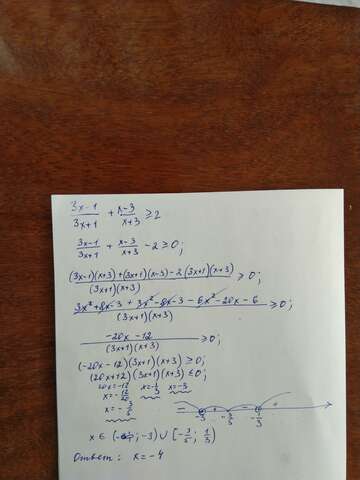 (3x-1)/(3x+1) + (x-3)/(x+3) ≥ 2
(3x-1)/(3x+1) + (x-3)/(x+3) - 2 ≥ 0;
((3x-1)(x+3)+(3x+1)(x-3)-2(3x+1)(x+3))/((3x+1)(x+3)) ≥ 0;
(3x²+8x-3+3x²-8x-3-6x²-20x-6)/((3x+1)(x+3)) ≥ 0;
(-20x-12)/((3x+1)(x+3)) ≥ 0;
(-20x-12)(3x+1)(x+3) ≥ 0;
(20x+12)(3x+1)(x+3) ≤ 0;
20x=-12 x=-1/3 x=-3
x=-12/20
x=-3/5
- + - +
-3 -3/5 -1/3
x ∈ ( ; -3) ∪ [-3/5; 1/3)
Ответ: x=-4